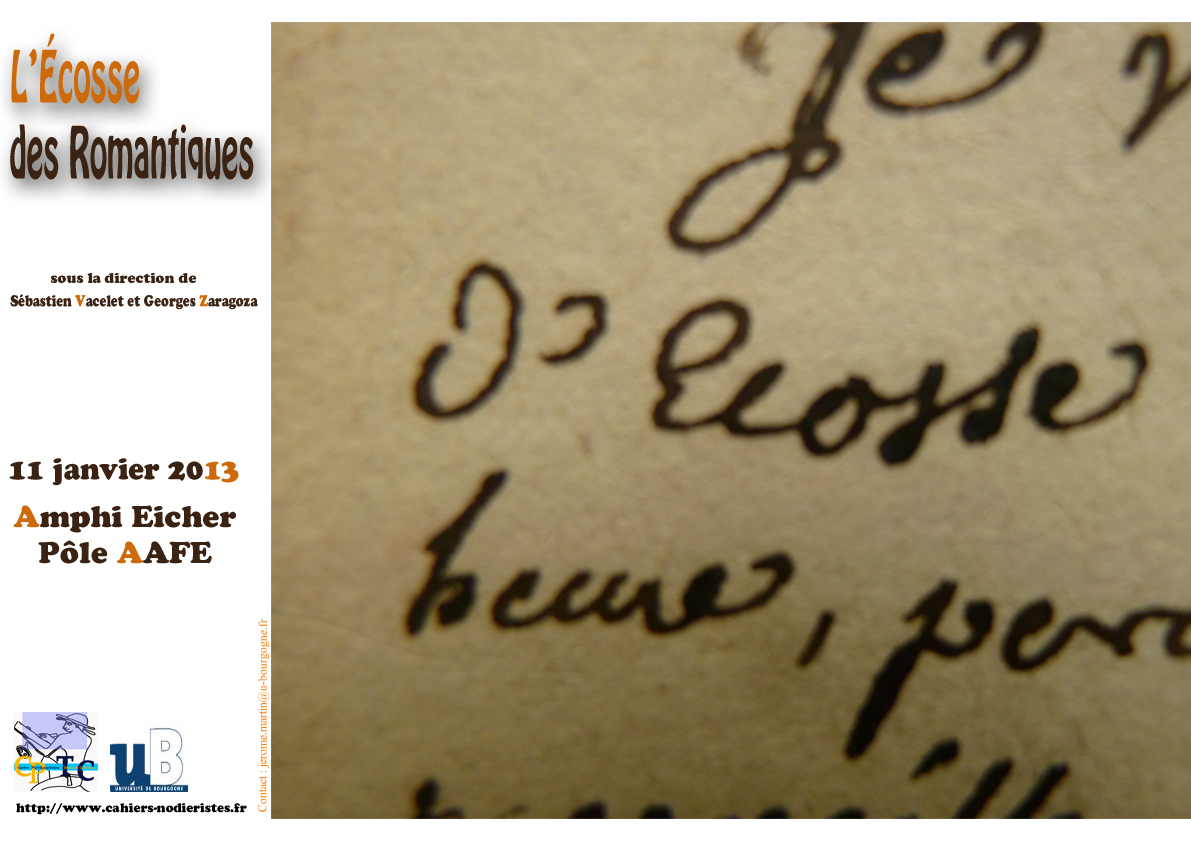 L'Écosse
des Romantiques
sous la direction de
Sébastien Vacelet et Georges Zaragoza
11 janvier 2013
Amphi Eicher
Pôle AAFE
CPTC
uB
UNIVERSITÉ DE BOURGOGNE
http://www.cahiers-nodieristes.fr
Contact : jerome.martin@u-bourgogne.fr
Je
d'Ecosse
heure,